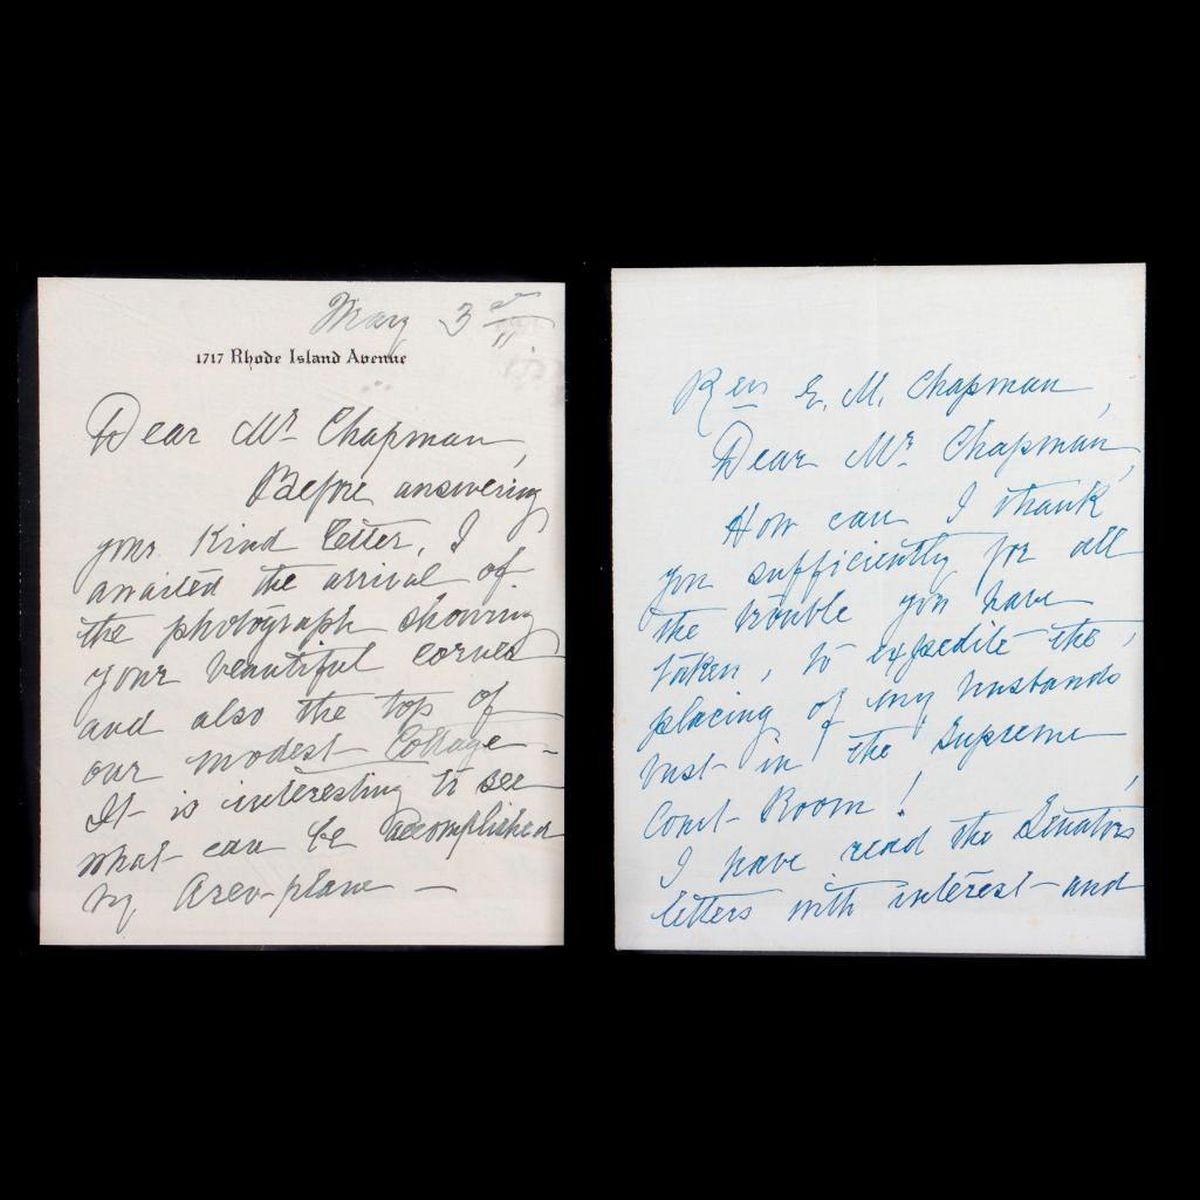 May 3
1717 Rhode Island Avenue
Dear Mr Chapman,
Before answering
your Kind letter, I
awaited the arrival of
the photograph showing
your beautiful corner
and also the top of
our modest Cottage -
It is interesting to see
what can be accomplished
by Areo-plane —
Rev E. M. Chapman,
Dear Mr Chapman,
How can I thank
you sufficiently for all
the trouble you have
taken, to expedite the
placing of my husbands
bust in the Supreme
Court Room!
I have read the Senators'
letters with interest and